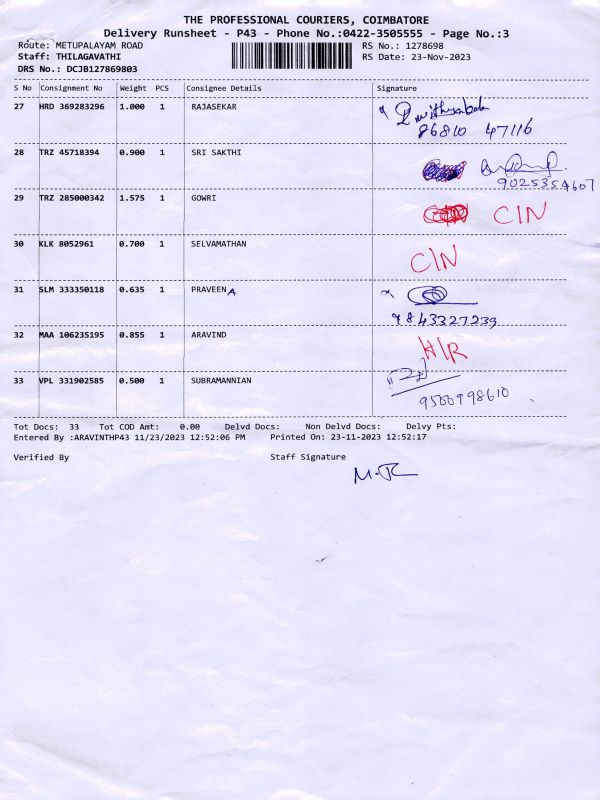 THE PROFESSIONAL COURIERS, COIMBATORE
Delivery Runsheet - P43 - Phone No.:0422-3505555 - Page No.:3
Route: METUPALAYAM ROAD RS No.: 1278698
Staff: THILAGAVATHI RS Date: 23-Nov-2023
DRS No.: DCJB127869803
S No Consignment No Weight PCS Consignee Details Signature
27 HRD 369283296 1.000 1 RAJASEKAR
86810 47116
28 TRZ 45718394 0.900 1 SRI SAKTHI
9025354607
29 TRZ 285000342 1.575 1 GOWRI C/N
30 KLK 8052961 0.700 1 SELVAMATHAN C/N
31 SLM 333350118 0.635 1 PRAVEEN A
9843327239
32 MAA 106235195 0.855 1 ARAVIND H/R
33 VPL 331902585 0.500 1 SUBRAMANNIAN
9566998610
Tot Docs: 33 Tot COD Amt: 0.00 Delvd Docs: Non Delvd Docs: Delvy Pts:
Entered By :ARAVINTHP43 11/23/2023 12:52:06 PM Printed On: 23-11-2023 12:52:17
Verified By Staff Signature